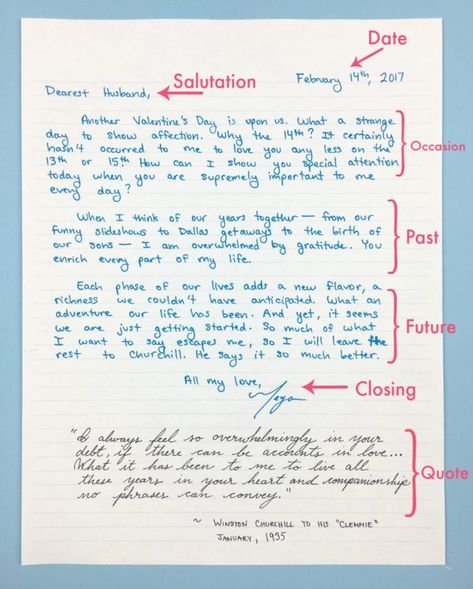 Date
February 14th, 2017
Salutation
Dearest Husband,
Another Valentine's Day is upon us. What a strange
day to show affection. Why the 14th? It certainly
hasn't occurred to me to love you any less on the
13th or 15th How can I show you special attention
today when you are supremely important to me
every day?
Occasion
When I think of our years together — from our
funny slideshows to Dallas getaways to the birth of
our sons — I am overwhelmed by gratitude. You
enrich every part of my life.
Past
Each phase of our lives adds a new flavor, a
richness we couldn't have anticipated. What an
adventure our life has been. And yet, it seems
we are just getting started. So much of what
I want to say escapes me, so I will leave the
rest to Churchill. He says it so much better.
Future
All my love,
Closing
"I always feel so overwhelmingly in your
debt, if there can be accounts in love...
What it has been to me to live all
these years in your heart and companionship
no phrases can convey."
Quote
~ Winston Churchill to his "Clemmie"
January, 1935